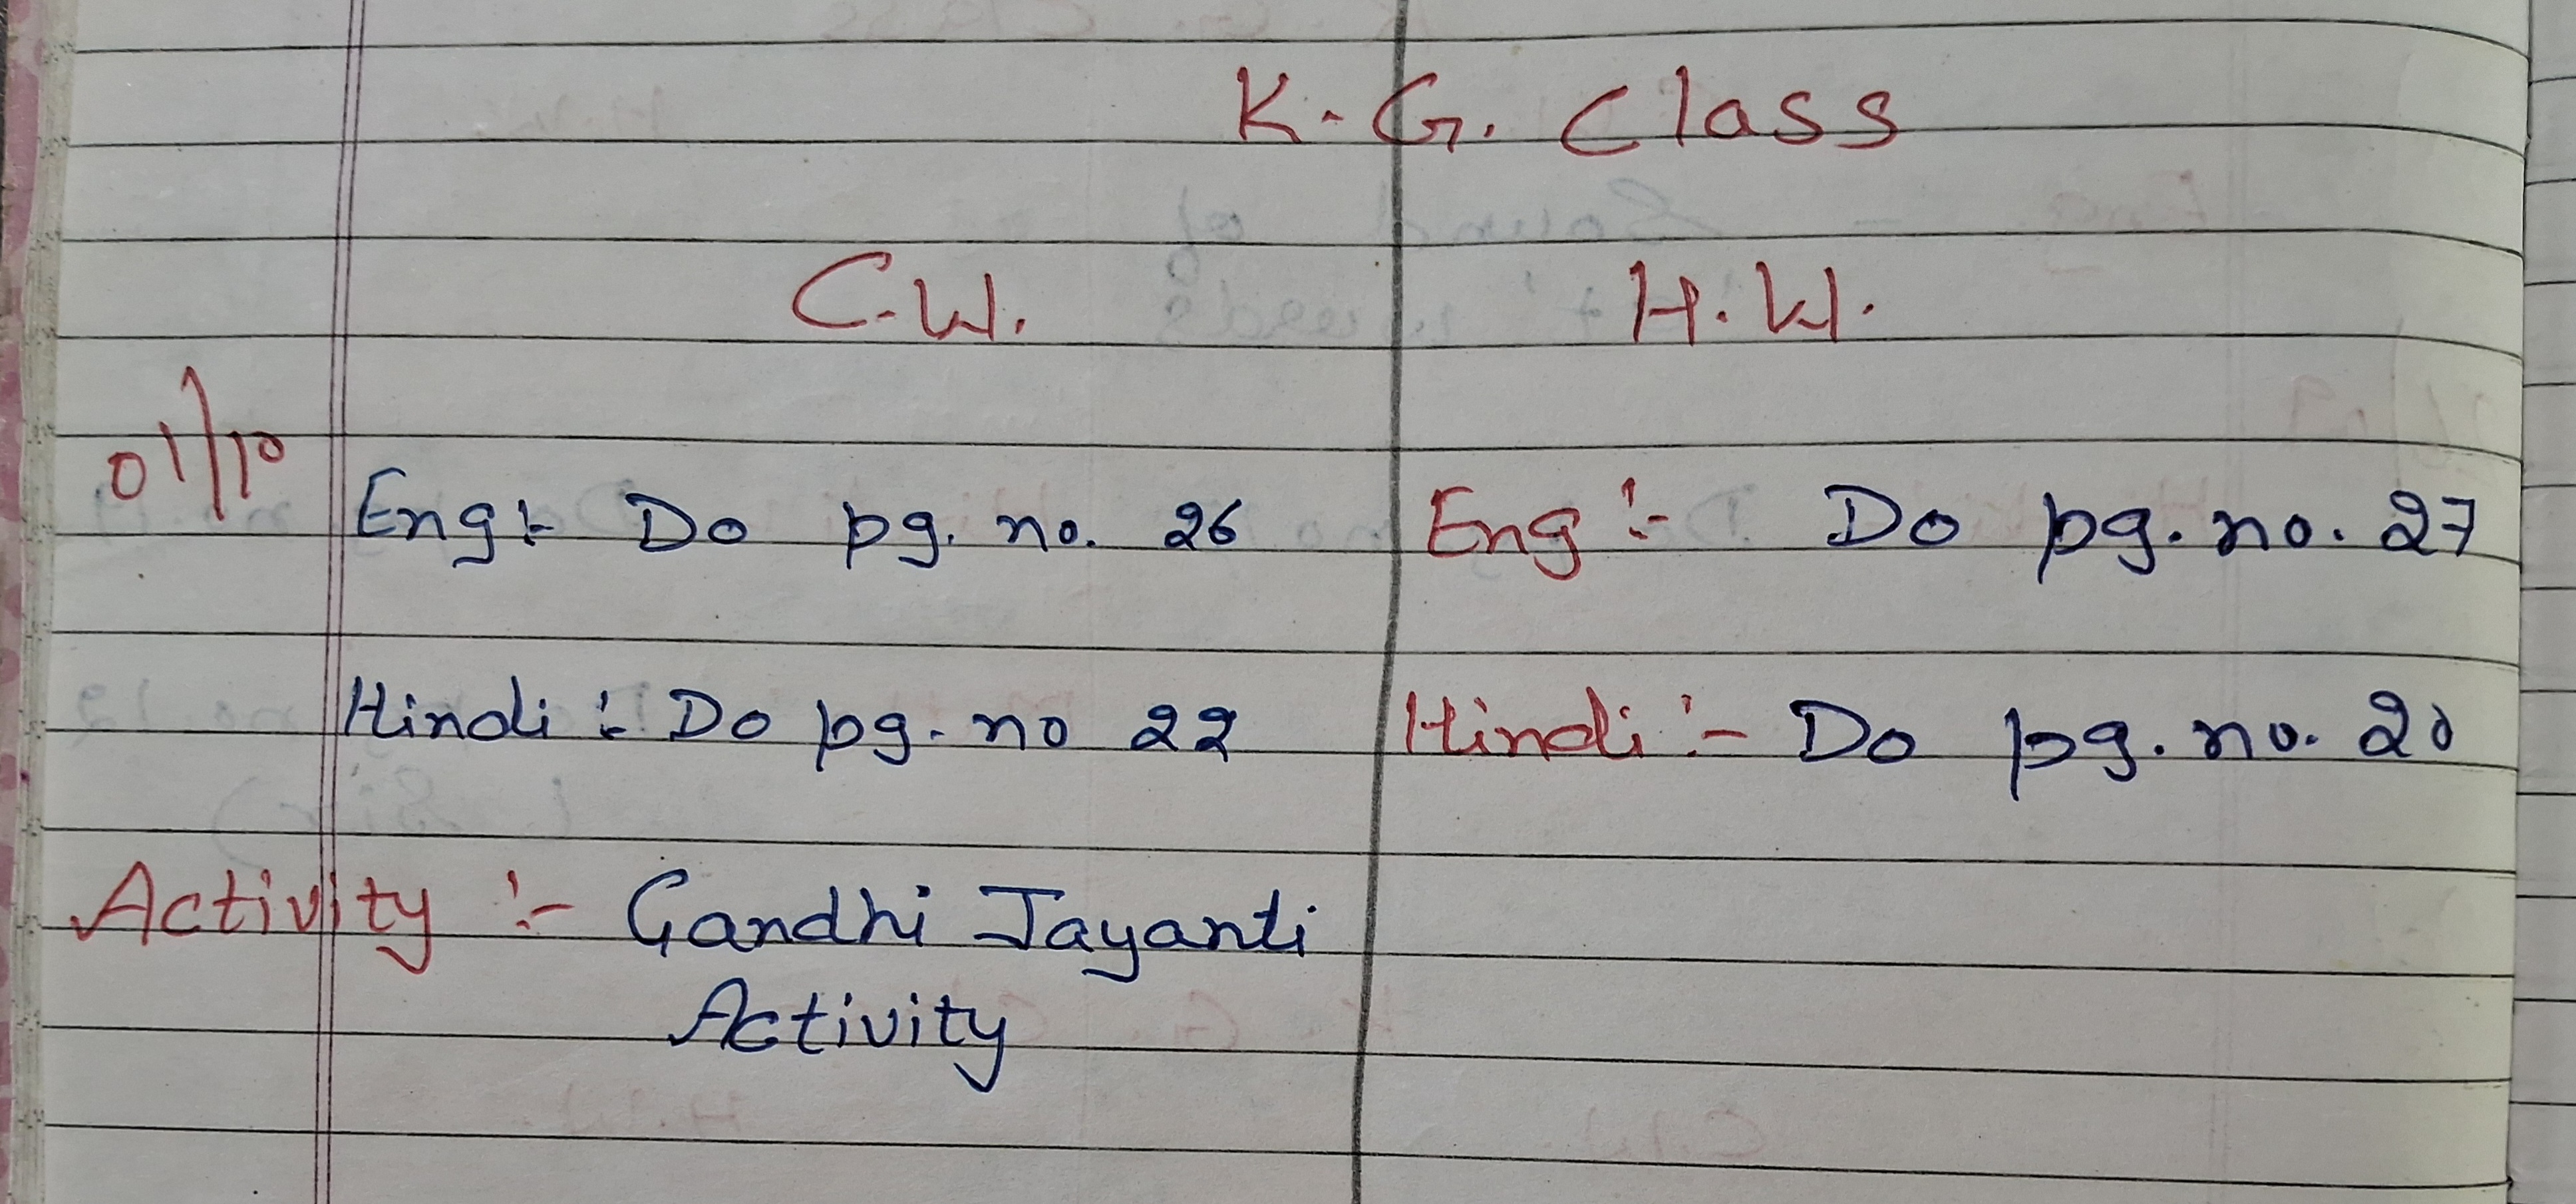 K. G. Class
C.W. H.W.
01/10
Eng:- Do pg. no. 26 Eng :- Do pg. no. 27
Hindi :- Do pg. no 22 Hindi :- Do pg. no. 20
Activity :- Gandhi Jayanti
Activity